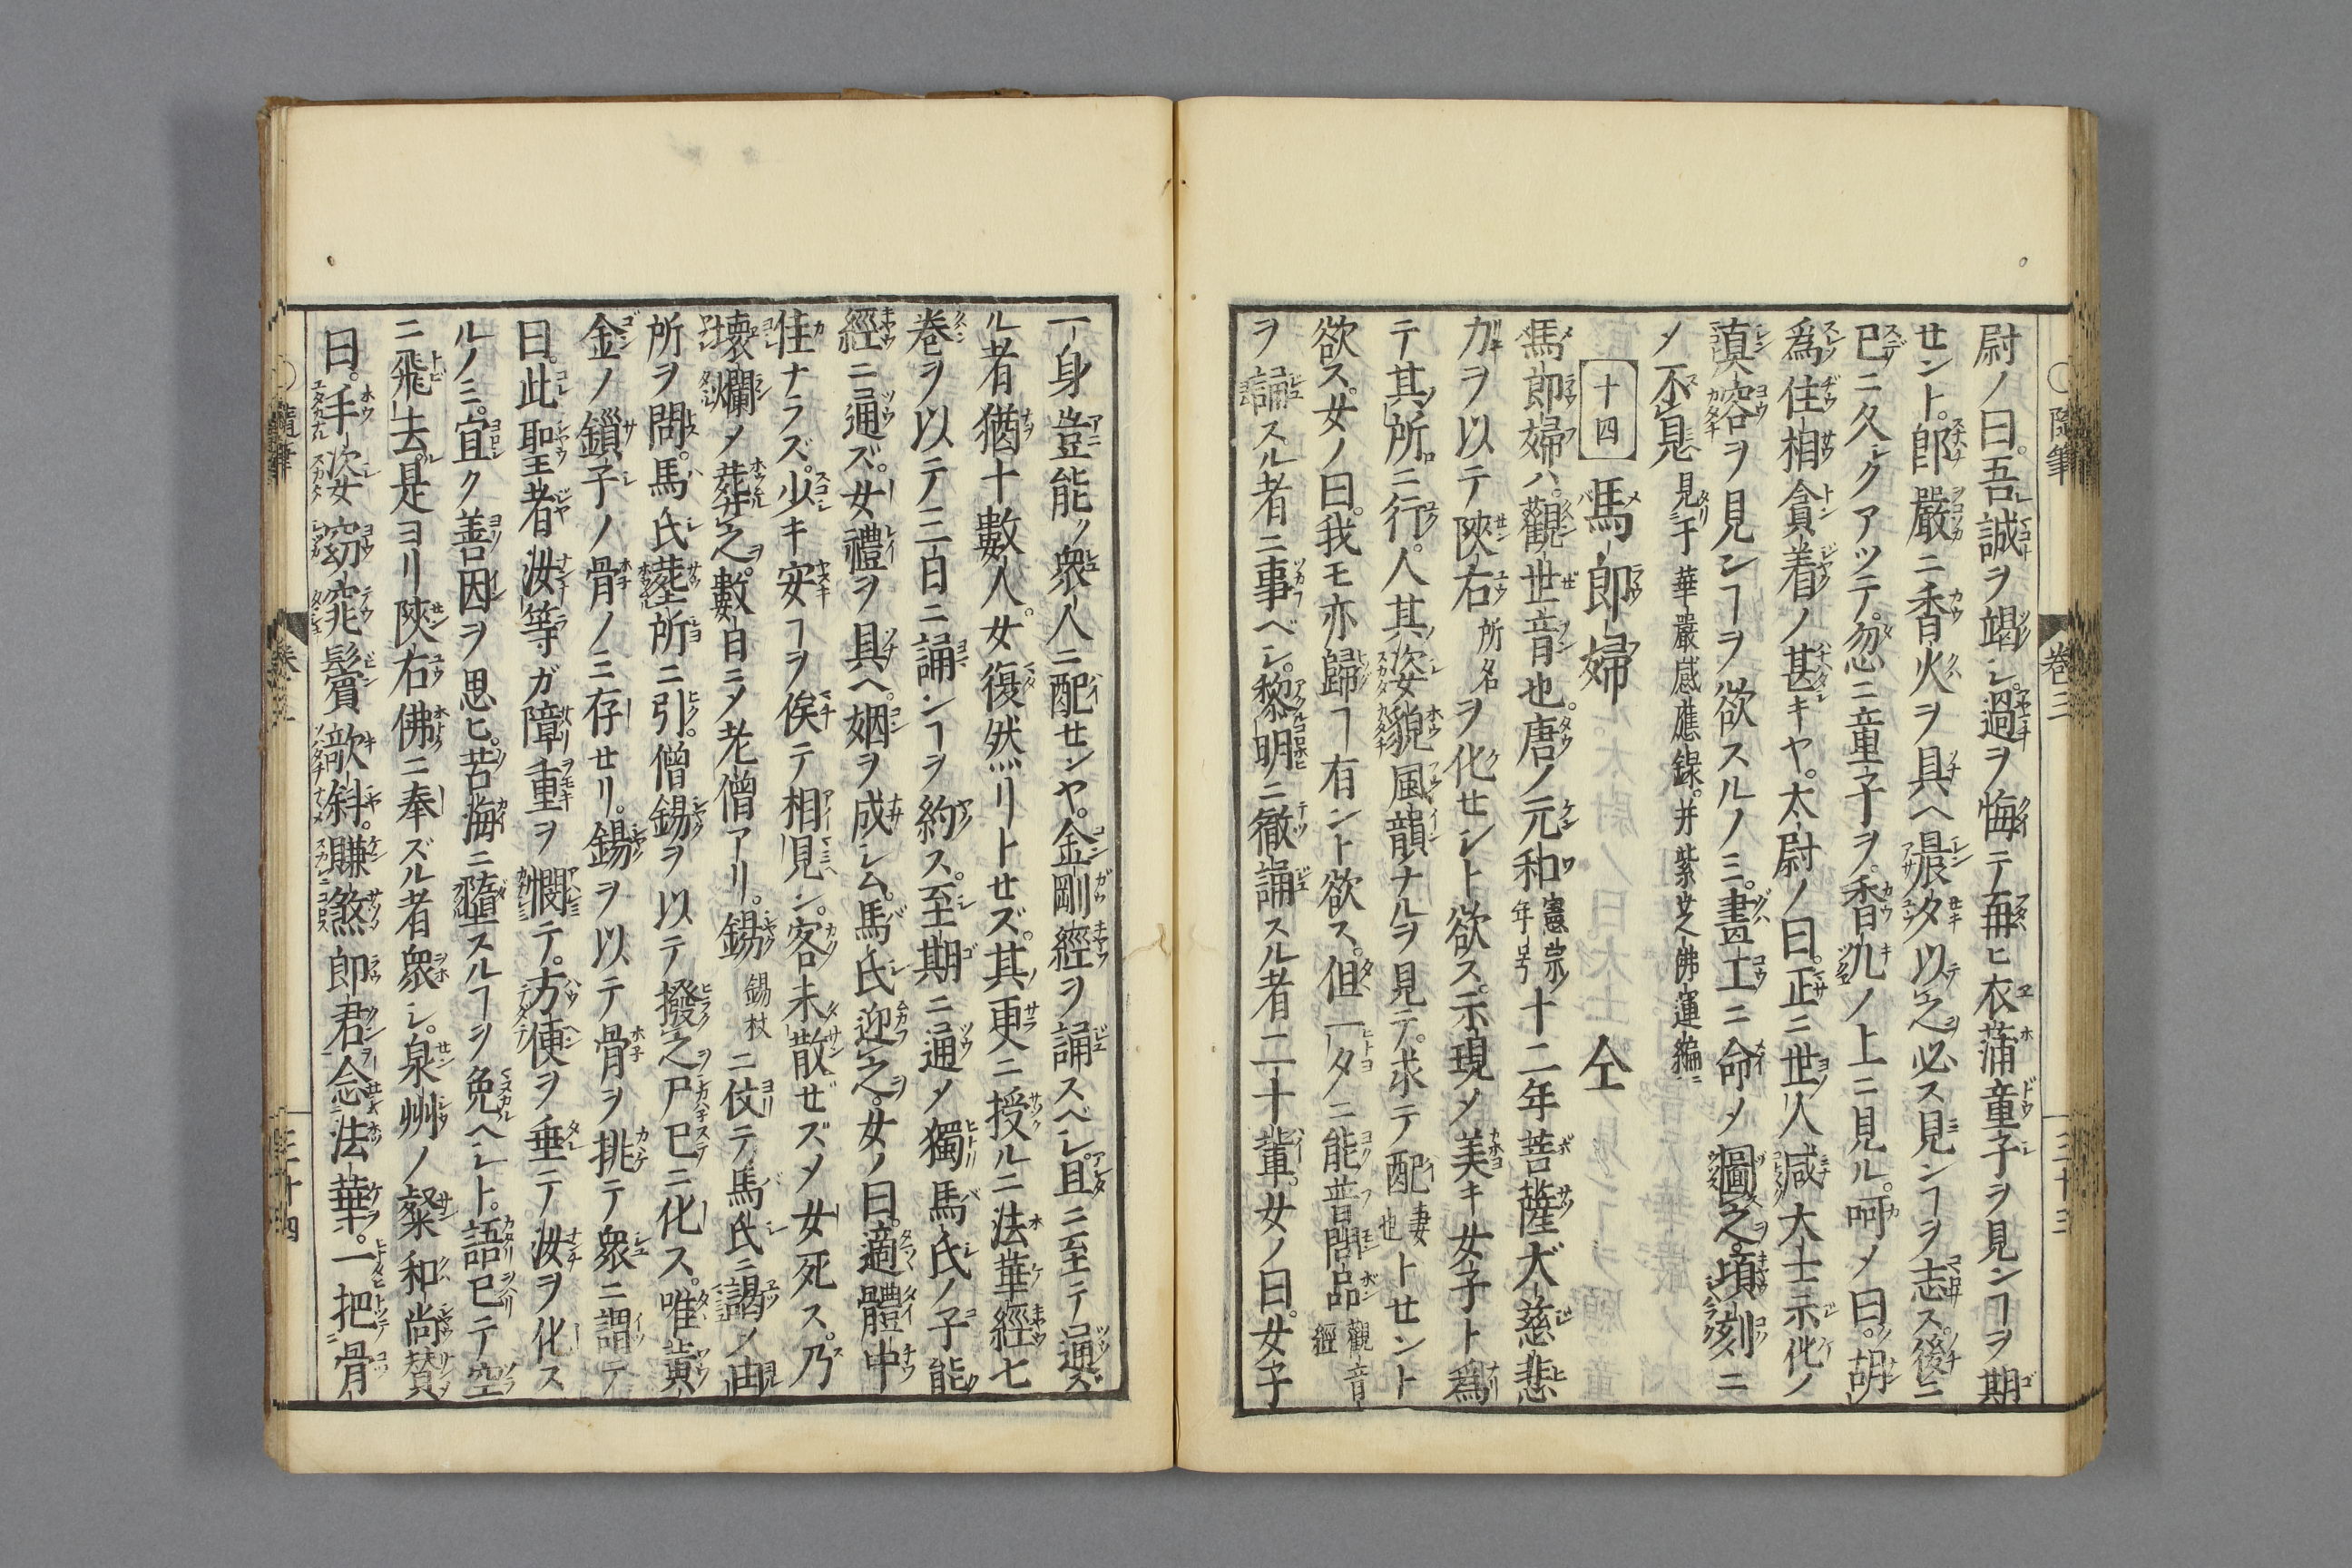 尉ノ曰。吾誠ヲ竭シ。過ヲ悔テ。再ヒ衣蒲童子ヲ見ンヿヲ期
セント。郎嚴ニ香火ヲ具ヘ晨夕以之必ス見ンヿヲ志ス。後ニ
已ニ久シクアツテ。忽ニ童子ヲ。香几ノ上ニ見ル。呵メ曰。胡
爲住相貪着ノ甚キヤ。太尉ノ曰。正ニ世人咸大士示化ノ
眞容ヲ見ンヿヲ欲スルノミ。畫工ニ命メ圖之。頃刻ニ
メ不見 見于華嚴感應錄。并紫芝佛運編ニ
十四 馬郎婦 仝
馬郎婦ハ。觀世音也。唐ノ元和 憲宗ノ年号 十二年菩薩大慈悲
力ヲ以テ陝右 所名 ヲ化セント欲ス。示現メ美キ女子ト爲
テ其所ニ行。人其姿貌風韻ナルヲ見テ。求テ配 妻也 トセント
欲ス。女ノ曰。我モ亦歸ヿ有ント欲ス。但一夕ニ能普門品 觀音經
ヲ誦スル者ニ事ベシ。黎明ニ徹誦スル者二十輩。女ノ曰。女子
一身豈能ク衆人ニ配センヤ。金剛經ヲ誦スベシ。且ニ至テ通ズ
ル者猶十數人。女復然リトせズ。其更ニ授ルニ法華經七
卷ヲ以テ三日ニ誦ンヿヲ約ス。至期ニ通メ獨馬氏ノ子能
經ニ通ズ。女禮ヲ具ヘ。姻ヲ成シム。馬氏迎之。女ノ曰。適體中
佳ナラズ。少キ安ヿヲ俟テ相見ン。客未散ぜズメ女死ス。乃
壞爛メ葬之。數日ニメ老僧アリ。錫 錫杖 ニ仗テ馬氏ニ謁ノ由
所ヲ問。馬氏葬所ニ引。僧錫ヲ以テ撥之尸已ニ化ス。唯黄
金ノ鎖子ノ骨ノミ存せリ。錫ヲ以テ骨ヲ挑テ衆ニ謂テ
曰。此聖者汝等ガ障重ヲ憫テ。方便ヲ垂テ汝ヲ化ス
ルノミ。宜ク善因ヲ思ヒ。苦海ニ墮スルヿヲ免ヘシト。語已テ空
ニ飛去。是ヨリ陝右佛ニ奉ズル者衆シ。泉州ノ粲和尚賛
曰。手姿窈窕鬢欹斜。賺煞郎君念法華。一把骨
○隨筆 卷三 三十三
○隨筆 卷三 三十四